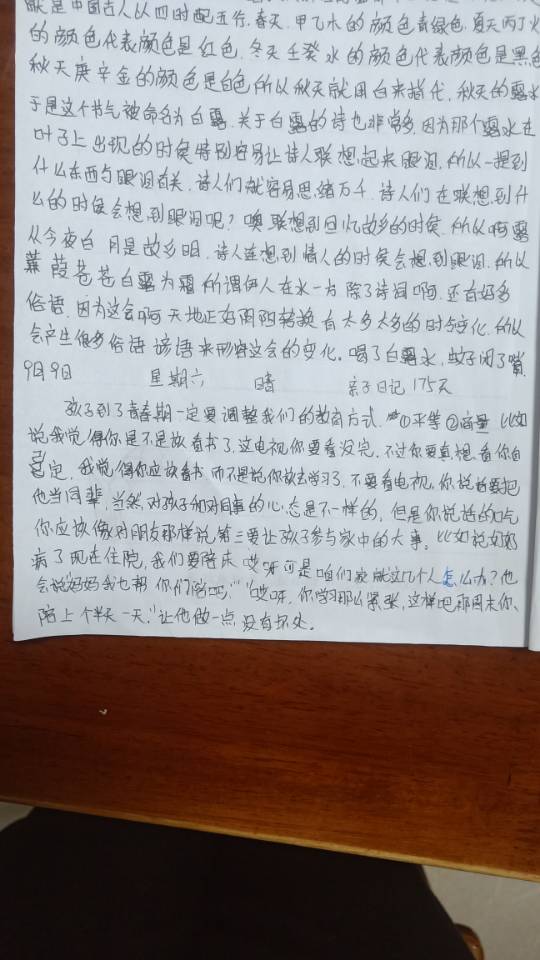 就是中国古人以四时配五行,春天,甲乙木的颜色青绿色,夏天丙丁火
的颜色代表颜色是红色,冬天壬癸水的颜色代表颜色是黑色
秋天庚辛金的颜色是白色所以秋天就用白来指代,秋天的露水
于是这个节气被命名为白露,关于白露的诗也非常多,因为那个露水在
叶子上出现的时候特别容易让诗人联想起来眼泪,所以一提到
什么东西与眼泪有关,诗人们就容易思绪万千,诗人们在联想到什
么的时候会想到眼泪呢?噢联想到回忆故乡的时候,所以啊露
从今夜白 月是故乡明,诗人连想到情人的时候会想到眼泪,所以
蒹葭苍苍白露为霜所谓伊人在水一方除了诗词啊,还有好多
俗语,因为这会啊天地正好阴阳转换有太多太多的时与变化,所以
会产生很多俗语谚语来形容这会的变化。喝了白露水,蚊子闭了嘴
9月9日 星期六 晴 亲子日记175天
孩子到了青春期一定要调整我们的教育方式,①平等②商量 比如
说我觉得你是不是该看书了,这电视你要看没完,不过你要真想看你自
己定,我觉得你应该看书 而不是说你该去学习了,不要看电视,你说话要把
他当同辈,当然对孩子和对同事的心态是不一样的,但是你说话的口气
你应该像对朋友那样说,第三要让孩子参与家中的大事。比如说奶奶
病了现在住院,我们要陪床 哎呀可是咱们家就这几个人怎么办?他
会说妈妈我也帮你们陪吧,""哎呀,你学习那么紧张,这样吧那周末你、
陪上个半天一天,"让他做一点没有坏处。